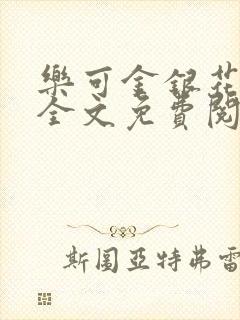 樂可金銀花
全文免費閱
斯圖亞特弗雷